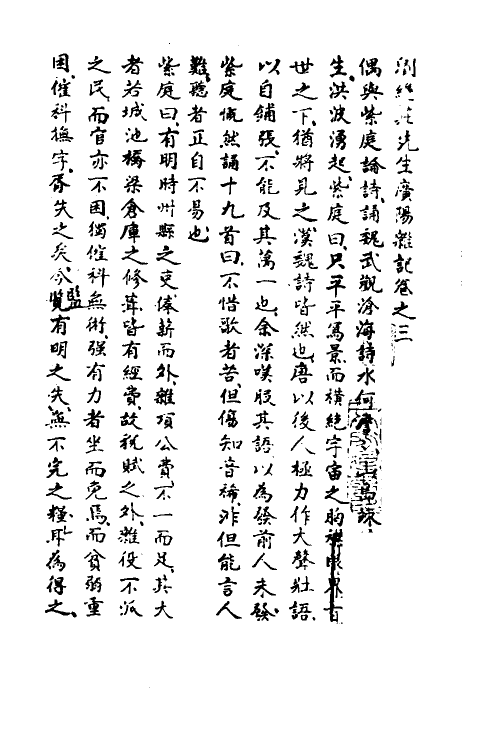 劉繼莊先生廣陽雜記卷之三
偶與紫庭論詩、誦魏武觀滄海詩、水何澹澹、山島竦
生、洪波湧起、紫庭曰、只平平寫景、而橫絕宇宙之胸襟眼界、百
世之下、猶將見之、漢魏詩皆然也、唐以後人極力作大聲壯語、
以自鋪張、不能及其萬一也、余深嘆服其語、以為發前人未發、
紫庭慨然誦十九首曰、不惜歌者苦、但傷知音稀、非但能言人
難、聽者正自不易也、
紫庭曰、有明時州縣之吏俸薪而外、雜項公費、不一而足、其大
者若城池橋梁倉庫之修葺、皆有經費、故稅賦之外、雜役不派
之民、而官亦不困、獨催科無術、強有力者坐而免焉、而貧弱重
困、催科撫字、胥失之矣、今鑑有明之失、無不完之糧、耶為得之、